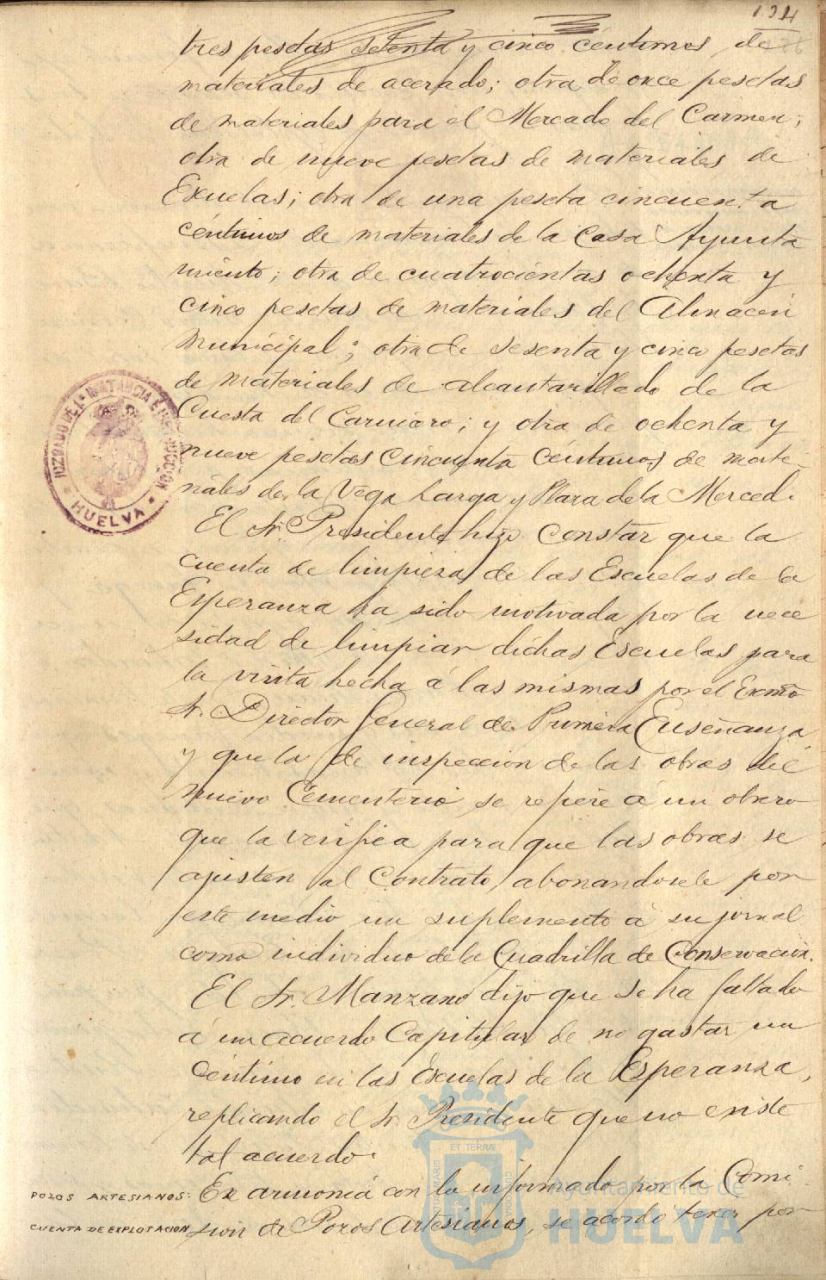 134
tres pesetas setenta y cinco céntimos, de
materiales de acerado; otra de once pesetas
de materiales para el Mercado del Carmen;
otra de nueve pesetas de materiales de
Escuelas; otra de una peseta cincuenta
céntimos de materiales de la Casa Ayunta
miento; otra de cuatrocientas ochenta y
cinco pesetas de materiales del Almacén
Municipal; otra de sesenta y cinco pesetas
de materiales de alcantarillado de la
Cuesta del Carnicero; y otra de ochenta y
nueve pesetas cincuenta céntimos de mate-
riales de la Vega Larga y Plaza de la Merced.
El Sr. Presidente hizo constar que la
cuenta de limpieza de las Escuelas de la
Esperanza ha sido motivada por la nece
sidad de limpiar dichas Escuelas para
la visita hecha á las mismas por el Excmo
Sr. Director General de Primera Enseñanza
y que la de inspección de las obras del
nuevo Cementerio, se refiere á un obrero
que la verifica para que las obras se
ajusten al Contrato abonandosele por
este medio un suplemento á su jornal
como individuo de la Cuadrilla de Conservación.
El Sr. Manzano dijo que se ha faltado
á un acuerdo Capitular de no gastar un
céntimo en las Escuelas de la Esperanza,
replicando el Sr. Presidente que no existe
tal acuerdo.
POZOS ARTESIANOS:
CUENTA DE EXPLOTACION
En armonía con lo informado por la Comi
sión de Pozos Artesianos, se acordó tener por
JUZGADO DE 1ª INSTANCIA É INSTRUCCION
HUELVA
Ayuntamiento de
HUELVA